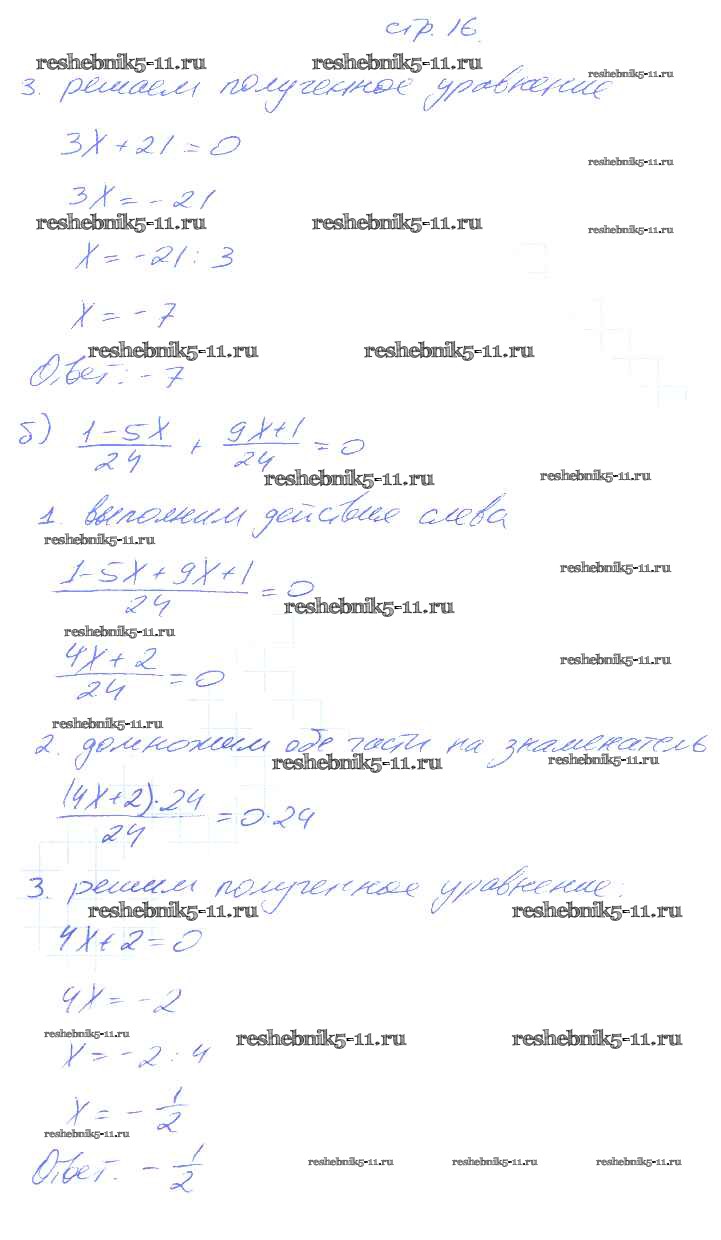 стр. 16.
reshebnik5-11.ru reshebnik5-11.ru reshebnik5-11.ru
3. решаем полученное уравнение
3x + 21 = 0
reshebnik5-11.ru
3x = - 21
reshebnik5-11.ru reshebnik5-11.ru reshebnik5-11.ru
x = - 21 : 3
x = - 7
reshebnik5-11.ru reshebnik5-11.ru
Ответ: - 7
б) (1-5x)/24 + (9x+1)/24 = 0
reshebnik5-11.ru reshebnik5-11.ru
1. выполним действие слева
reshebnik5-11.ru
(1-5x+9x+1)/24 = 0
reshebnik5-11.ru
reshebnik5-11.ru
reshebnik5-11.ru
(4x+2)/24 = 0
reshebnik5-11.ru
reshebnik5-11.ru
2. домножим обе части на знаменатель
reshebnik5-11.ru reshebnik5-11.ru
((4x+2)·24)/24 = 0·24
3. решим полученное уравнение:
reshebnik5-11.ru reshebnik5-11.ru
4x+2=0
4x = -2
reshebnik5-11.ru reshebnik5-11.ru reshebnik5-11.ru
x = -2 : 4
x = - 1/2
reshebnik5-11.ru
Ответ: - 1/2
reshebnik5-11.ru reshebnik5-11.ru reshebnik5-11.ru